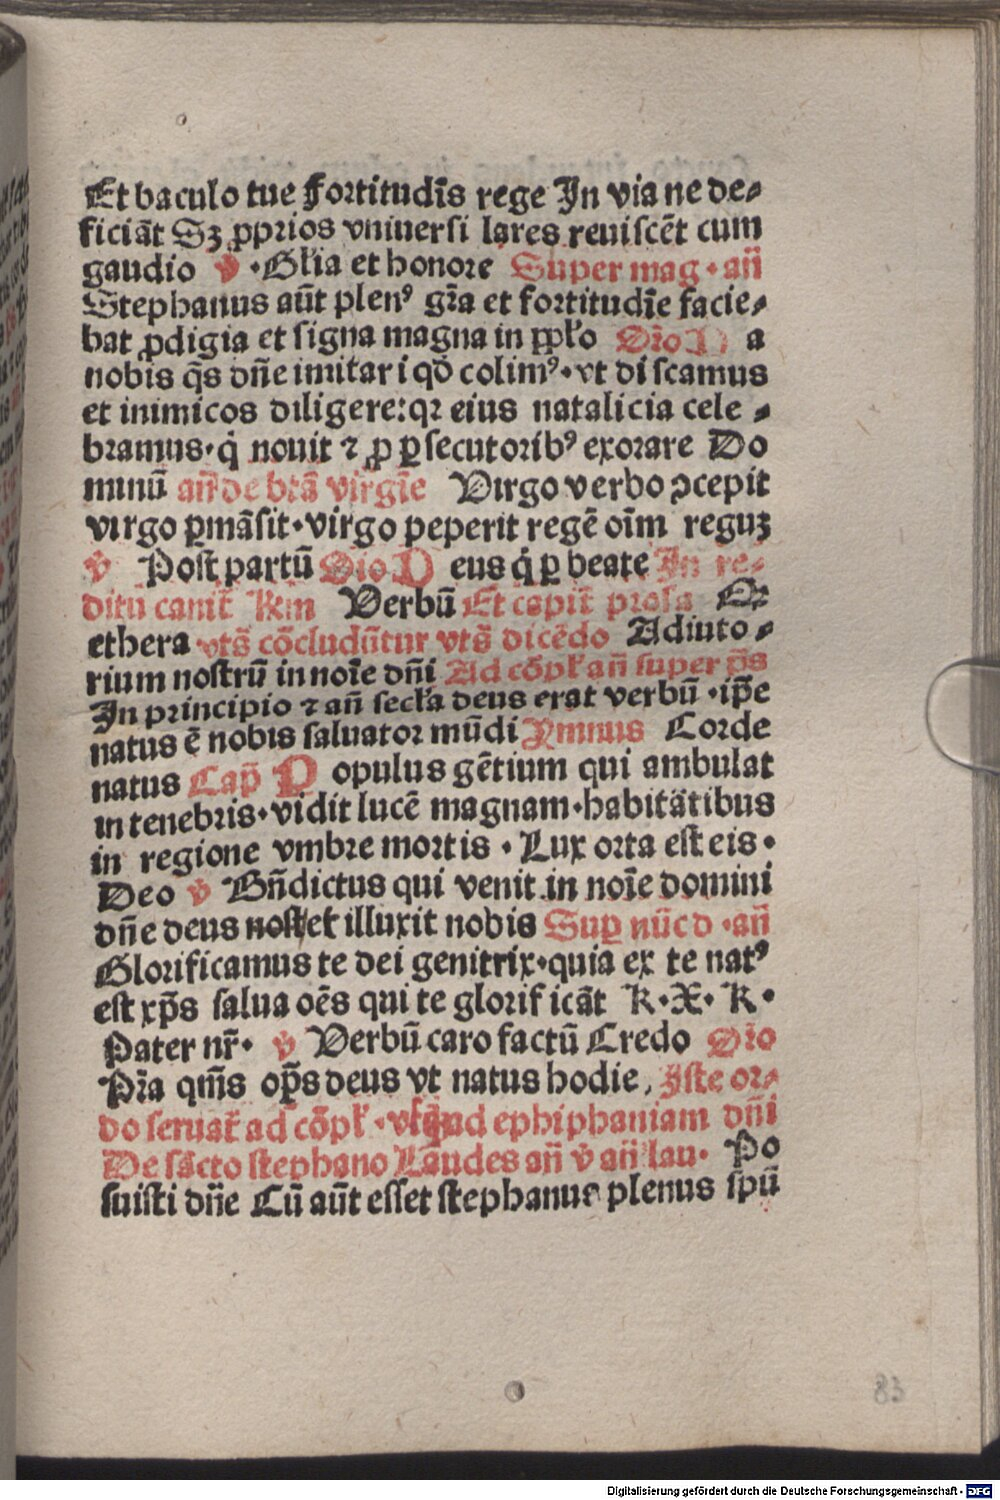 Et baculo tue fortitudīs rege In via ne de⸗
ficiāt Sꝫ ꝓprios vniuersi lares reuiscēt cum
gaudio ℣ ·Gl̄ia et honore Super mag · an̄
Stephanus aūt plenꝰ gr̄a et fortitudīe facie⸗
bat ꝓdigia et signa magna in ppl̄o Or̄o D a
nobis q̄s dn̄e imitari qd̄ colimꝰ· vt discamus
et inimicos diligere: qꝛ eius natalicia cele⸗
bramus· q̇ nouit ⁊ ꝓ ꝑsecutoribꝰ exorare Do
minū an̄ de bt̄ā virgīe Virgo verbo ꝯcepit
virgo ꝑmāsit· virgo peperit regē oīm reguꝫ
℣ Post partū Oio D eus q̇ ꝑ beate In re⸗
ditu canit̄ Rm Verbū Et capit̄ prosa Or
ethera vts̄ cōcludūtur vts̄ dicēdo Adiuto⸗
rium nostrū in noīe dn̄i Ad cōpl̄ an̄ super p̄s
In principio ⁊ an̄ secl̄a deus erat verbū · ip̄e
natus ē nobis saluator mūdi Ymnus Corde
natus Cap̄ P opulus gētium qui ambulat
in tenebris· vidit lucē magnam· habitātibus
in regione vmbre mortis · Lux orta est eis ·
Deo ℣ Bn̄dictus qui venit in noīe domini
dn̄e deus nost̄ et illuxit nobis Suꝑ nūc d · an̄
Glorificamus te dei genitrix· quia ex te natꝰ
est xp̄s salua oēs qui te glorificāt K · X · K ·
Pater nr̄· ℣ Verbū caro factū Credo Or̄o
Pr̄a qm̄s op̄s deus vt natus hodie, Iste or⸗
do seruat̄ ad cōpl̄ · vsq̄ ad ephiphaniam dn̄i
De sācto stephano Laudes an̄ ℣ an̄ lau· Po
suisti dn̄e Cū aūt esset stephanus plenus spū
83
Digitalisierung gefördert durch die Deutsche Forschungsgemeinschaft - DFG